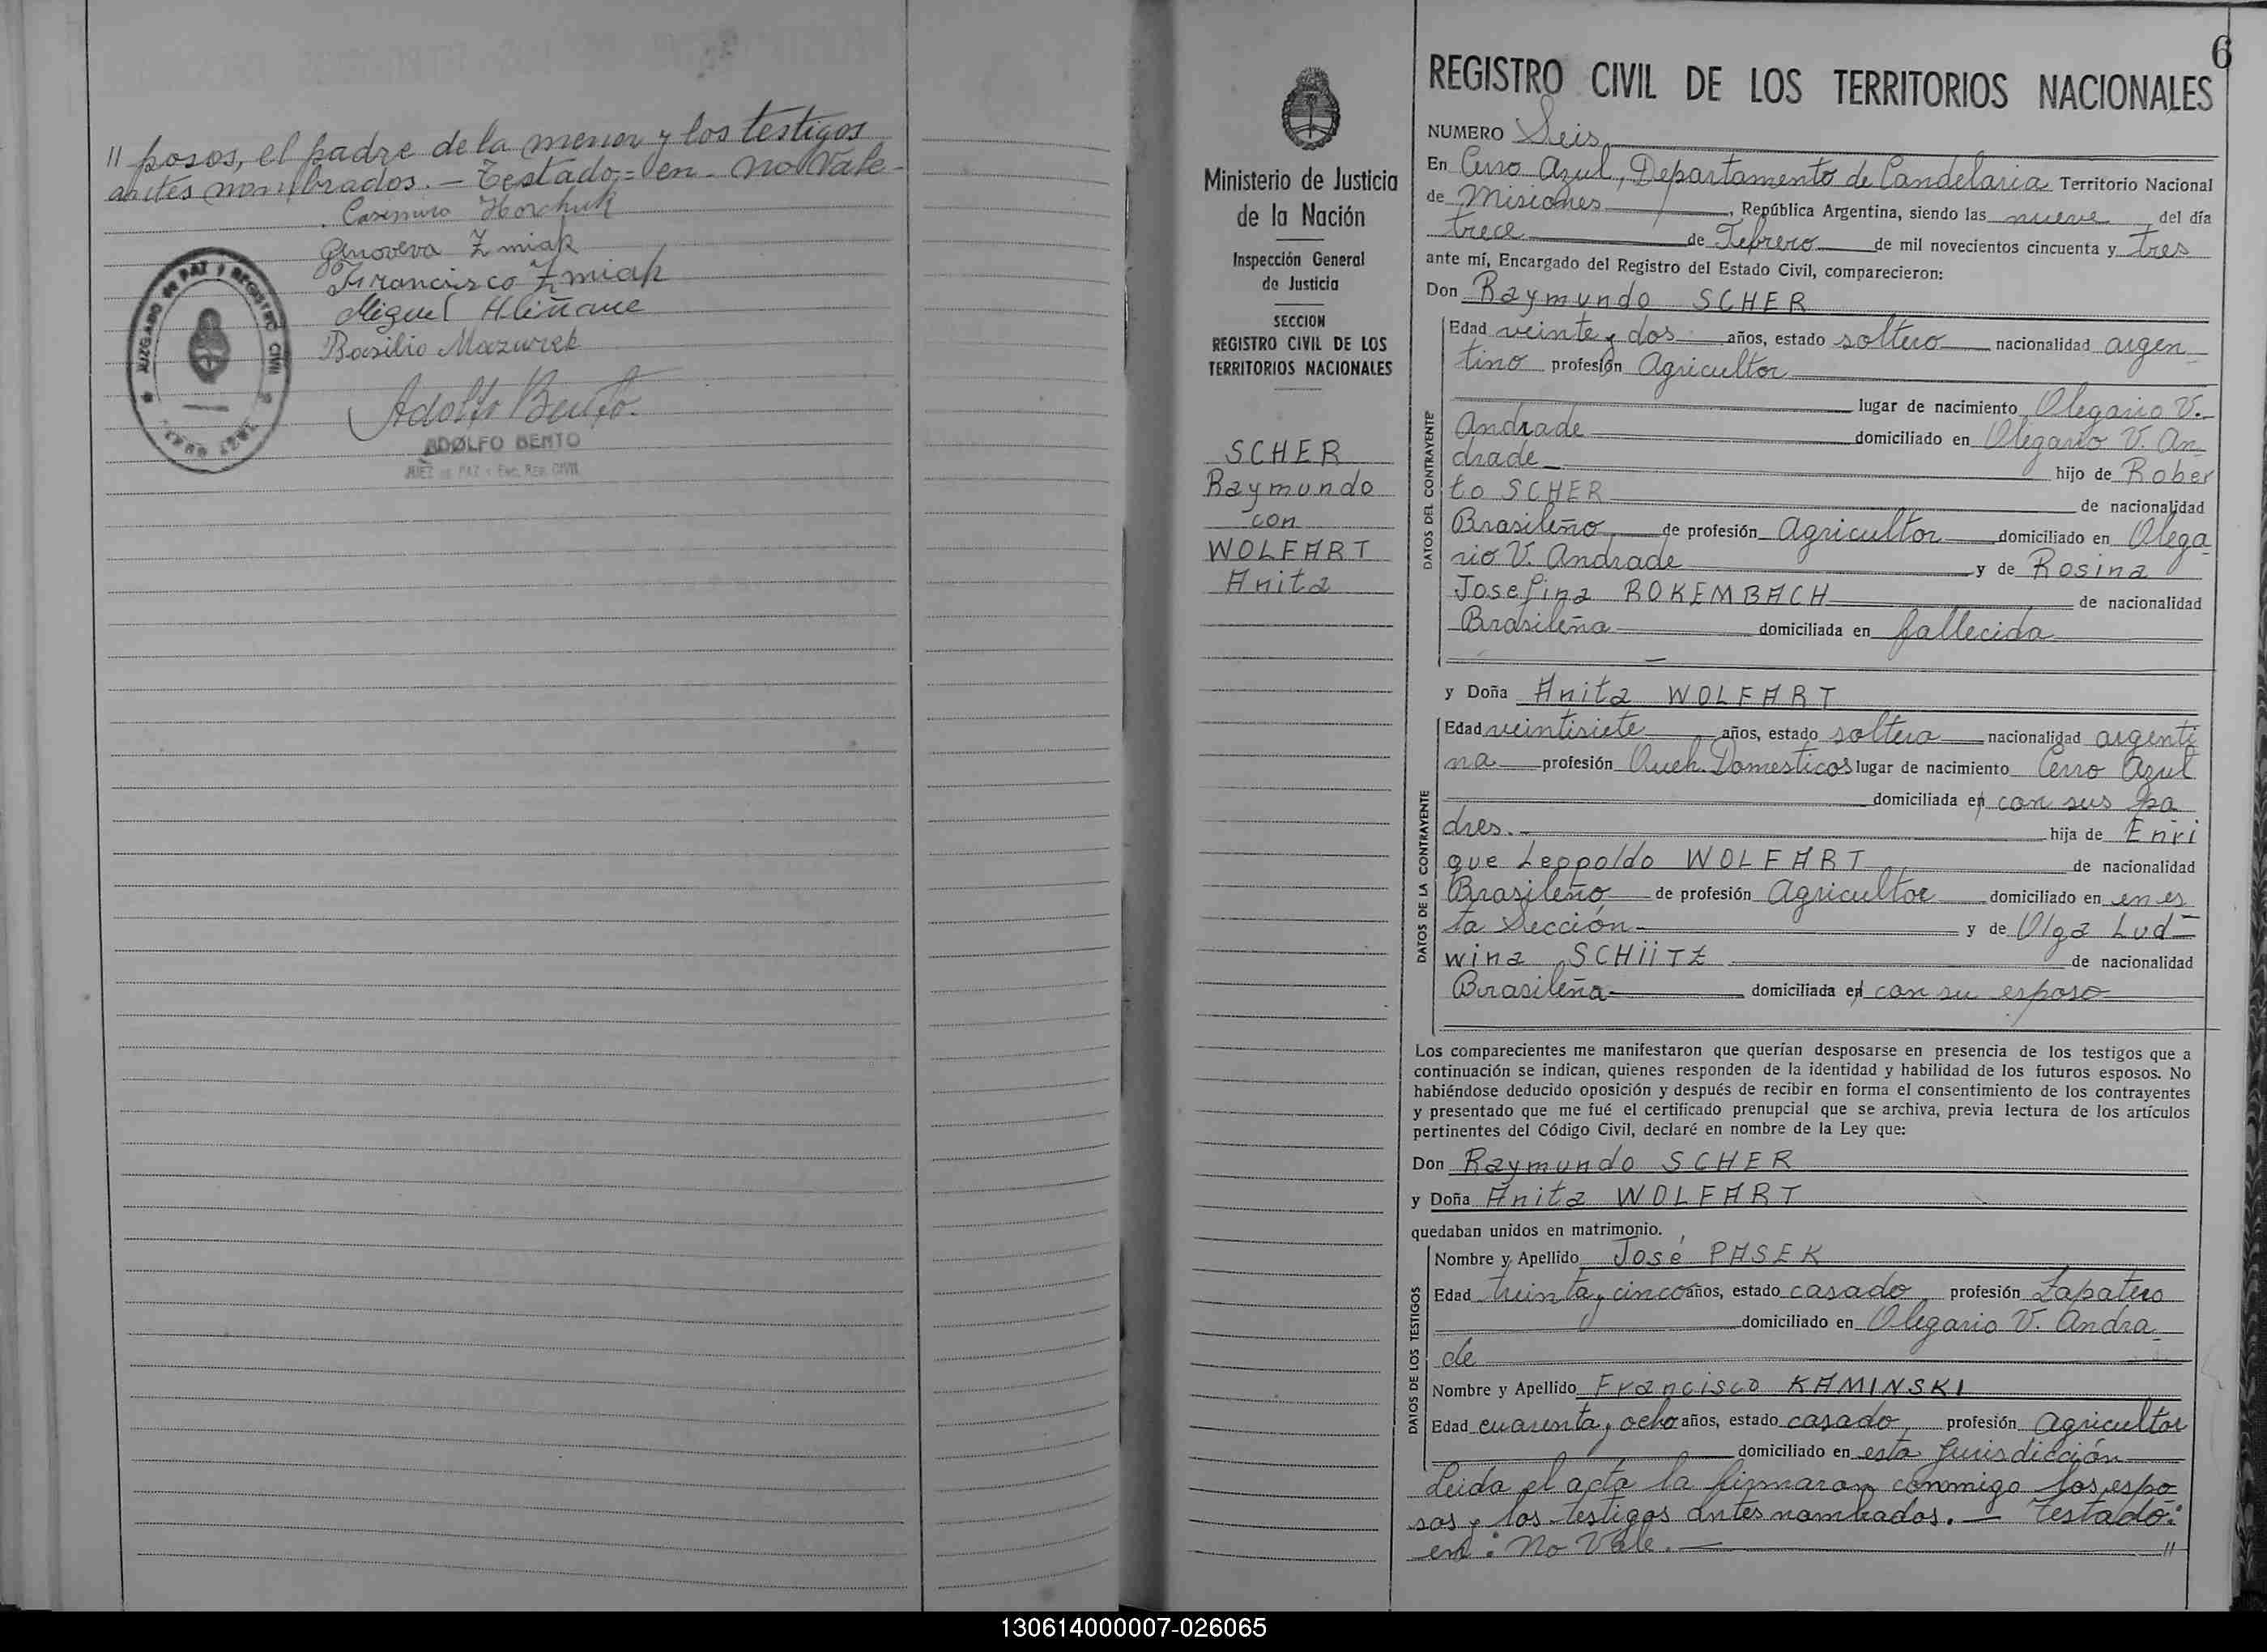 // posos, el padre de la menor y los testigos
antes nombrados. — Testado = en - no Vale -
Casimiro Horchuk
Genoveva Zmiak
Francisco Zmiak
Miguel
Basilio Mazurek
JUZGADO de PAZ Y REGISTRO CIVIL
Adolfo Bento.
ADOLFO BENTO
JUEZ DE PAZ Y Enc. REG. CIVIL
6
Ministerio de Justicia
de la Nación
Inspección General
de Justicia
SECCION
REGISTRO CIVIL DE LOS
TERRITORIOS NACIONALES
SCHER
Raymundo
con
WOLFART
Anita
REGISTRO CIVIL DE LOS TERRITORIOS NACIONALES
NUMERO Seis
En Cerro Azul, Departamento de Candelaria Territorio Nacional
de Misiones, República Argentina, siendo las nueve del día
trece de Febrero de mil novecientos cincuenta y tres
ante mí, Encargado del Registro del Estado Civil, comparecieron:
Don Raymundo SCHER
DATOS DEL CONTRAYENTE
Edad veinte y dos años, estado soltero nacionalidad argen
tino profesión Agricultor
lugar de nacimiento Olegario V.
Andrade domiciliado en Olegario V. An
drade hijo de Rober
to SCHER de nacionalidad
Brasileño de profesión Agricultor domiciliado en Olega
rio V. Andrade y de Rosina
Josefina ROKEMBACH de nacionalidad
Brasileña domiciliada en fallecida
y Doña Anita WOLFART
DATOS DE LA CONTRAYENTE
Edad veintisiete años, estado soltera nacionalidad argenti
na profesión Queh. Domesticos lugar de nacimiento Cerro Azul
domiciliada en con sus pa
dres. hija de Enri
que Leopoldo WOLFART de nacionalidad
Brasileño de profesión Agricultor domiciliado en en es
ta Sección y de Olga Lud-
wina SCHüTZ de nacionalidad
Brasileña domiciliada en con su esposo
Los comparecientes me manifestaron que querían desposarse en presencia de los testigos que a
continuación se indican, quienes responden de la identidad y habilidad de los futuros esposos. No
habiéndose deducido oposición y después de recibir en forma el consentimiento de los contrayentes
y presentado que me fué el certificado prenupcial que se archiva, previa lectura de los artículos
pertinentes del Código Civil, declaré en nombre de la Ley que:
Don Raymundo SCHER
y Doña Anita WOLFART
quedaban unidos en matrimonio.
DATOS DE LOS TESTIGOS
Nombre y Apellido José PASEK
Edad treinta y cinco años, estado casado profesión Zapatero
domiciliado en Olegario V. Andra
de
Nombre y Apellido Francisco KAMINSKI
Edad cuarenta y ocho años, estado casado profesión Agricultor
domiciliado en esta Jurisdicción
Leida el acta la firmaron conmigo los espo
sos y los testigos antes nombrados. — Testado:
en: No Vale. — //
130614000007-026065